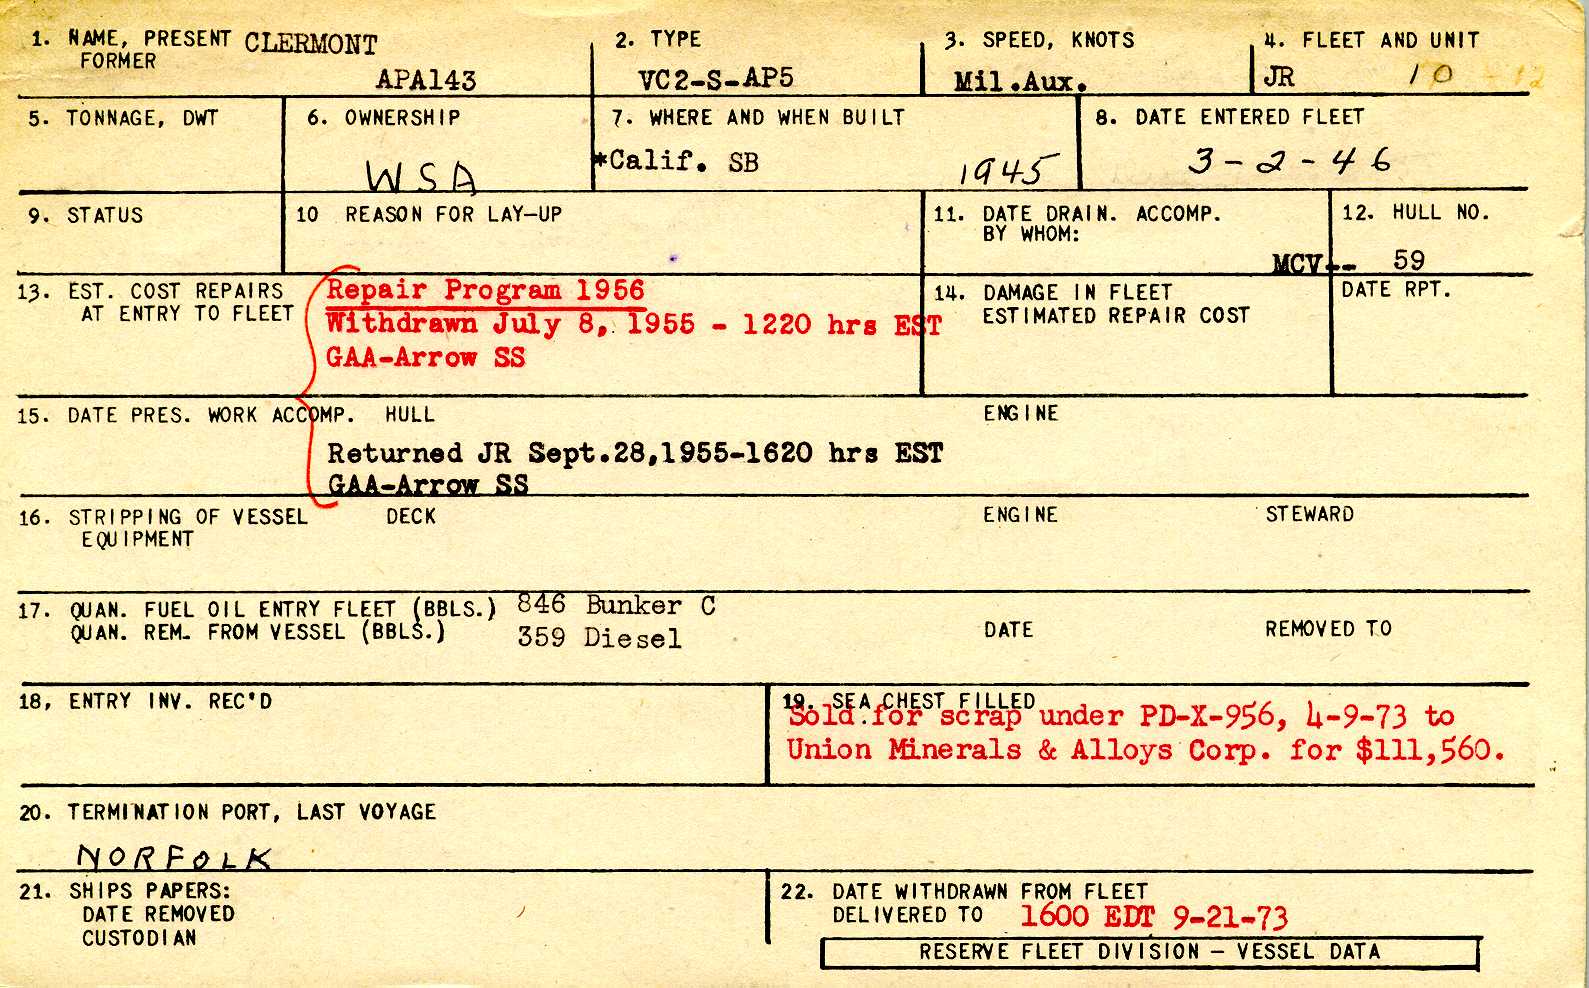 1. NAME, PRESENT CLERMONT
FORMER APA143
2. TYPE
VC2-S-AP5
3. SPEED, KNOTS
Mil.Aux.
4. FLEET AND UNIT
JR 10
5. TONNAGE, DWT
6. OWNERSHIP
WSA
7. WHERE AND WHEN BUILT
*Calif. SB 1945
8. DATE ENTERED FLEET
3-2-46
9. STATUS
10 REASON FOR LAY-UP
11. DATE DRAIN. ACCOMP.
BY WHOM:
12. HULL NO.
MCV-- 59
13. EST. COST REPAIRS
AT ENTRY TO FLEET
Repair Program 1956
Withdrawn July 8, 1955 - 1220 hrs EST
GAA-Arrow SS
14. DAMAGE IN FLEET
ESTIMATED REPAIR COST
DATE RPT.
15. DATE PRES. WORK ACCOMP. HULL ENGINE
Returned JR Sept.28,1955-1620 hrs EST
GAA-Arrow SS
16. STRIPPING OF VESSEL DECK ENGINE STEWARD
EQUIPMENT
17. QUAN. FUEL OIL ENTRY FLEET (BBLS.) 846 Bunker C
QUAN. REM. FROM VESSEL (BBLS.) 359 Diesel DATE REMOVED TO
18, ENTRY INV. REC'D
19. SEA CHEST FILLED
Sold for scrap under PD-X-956, 4-9-73 to
Union Minerals & Alloys Corp. for $111,560.
20. TERMINATION PORT, LAST VOYAGE
NORFOLK
21. SHIPS PAPERS:
DATE REMOVED
CUSTODIAN
22. DATE WITHDRAWN FROM FLEET
DELIVERED TO 1600 EDT 9-21-73
RESERVE FLEET DIVISION - VESSEL DATA